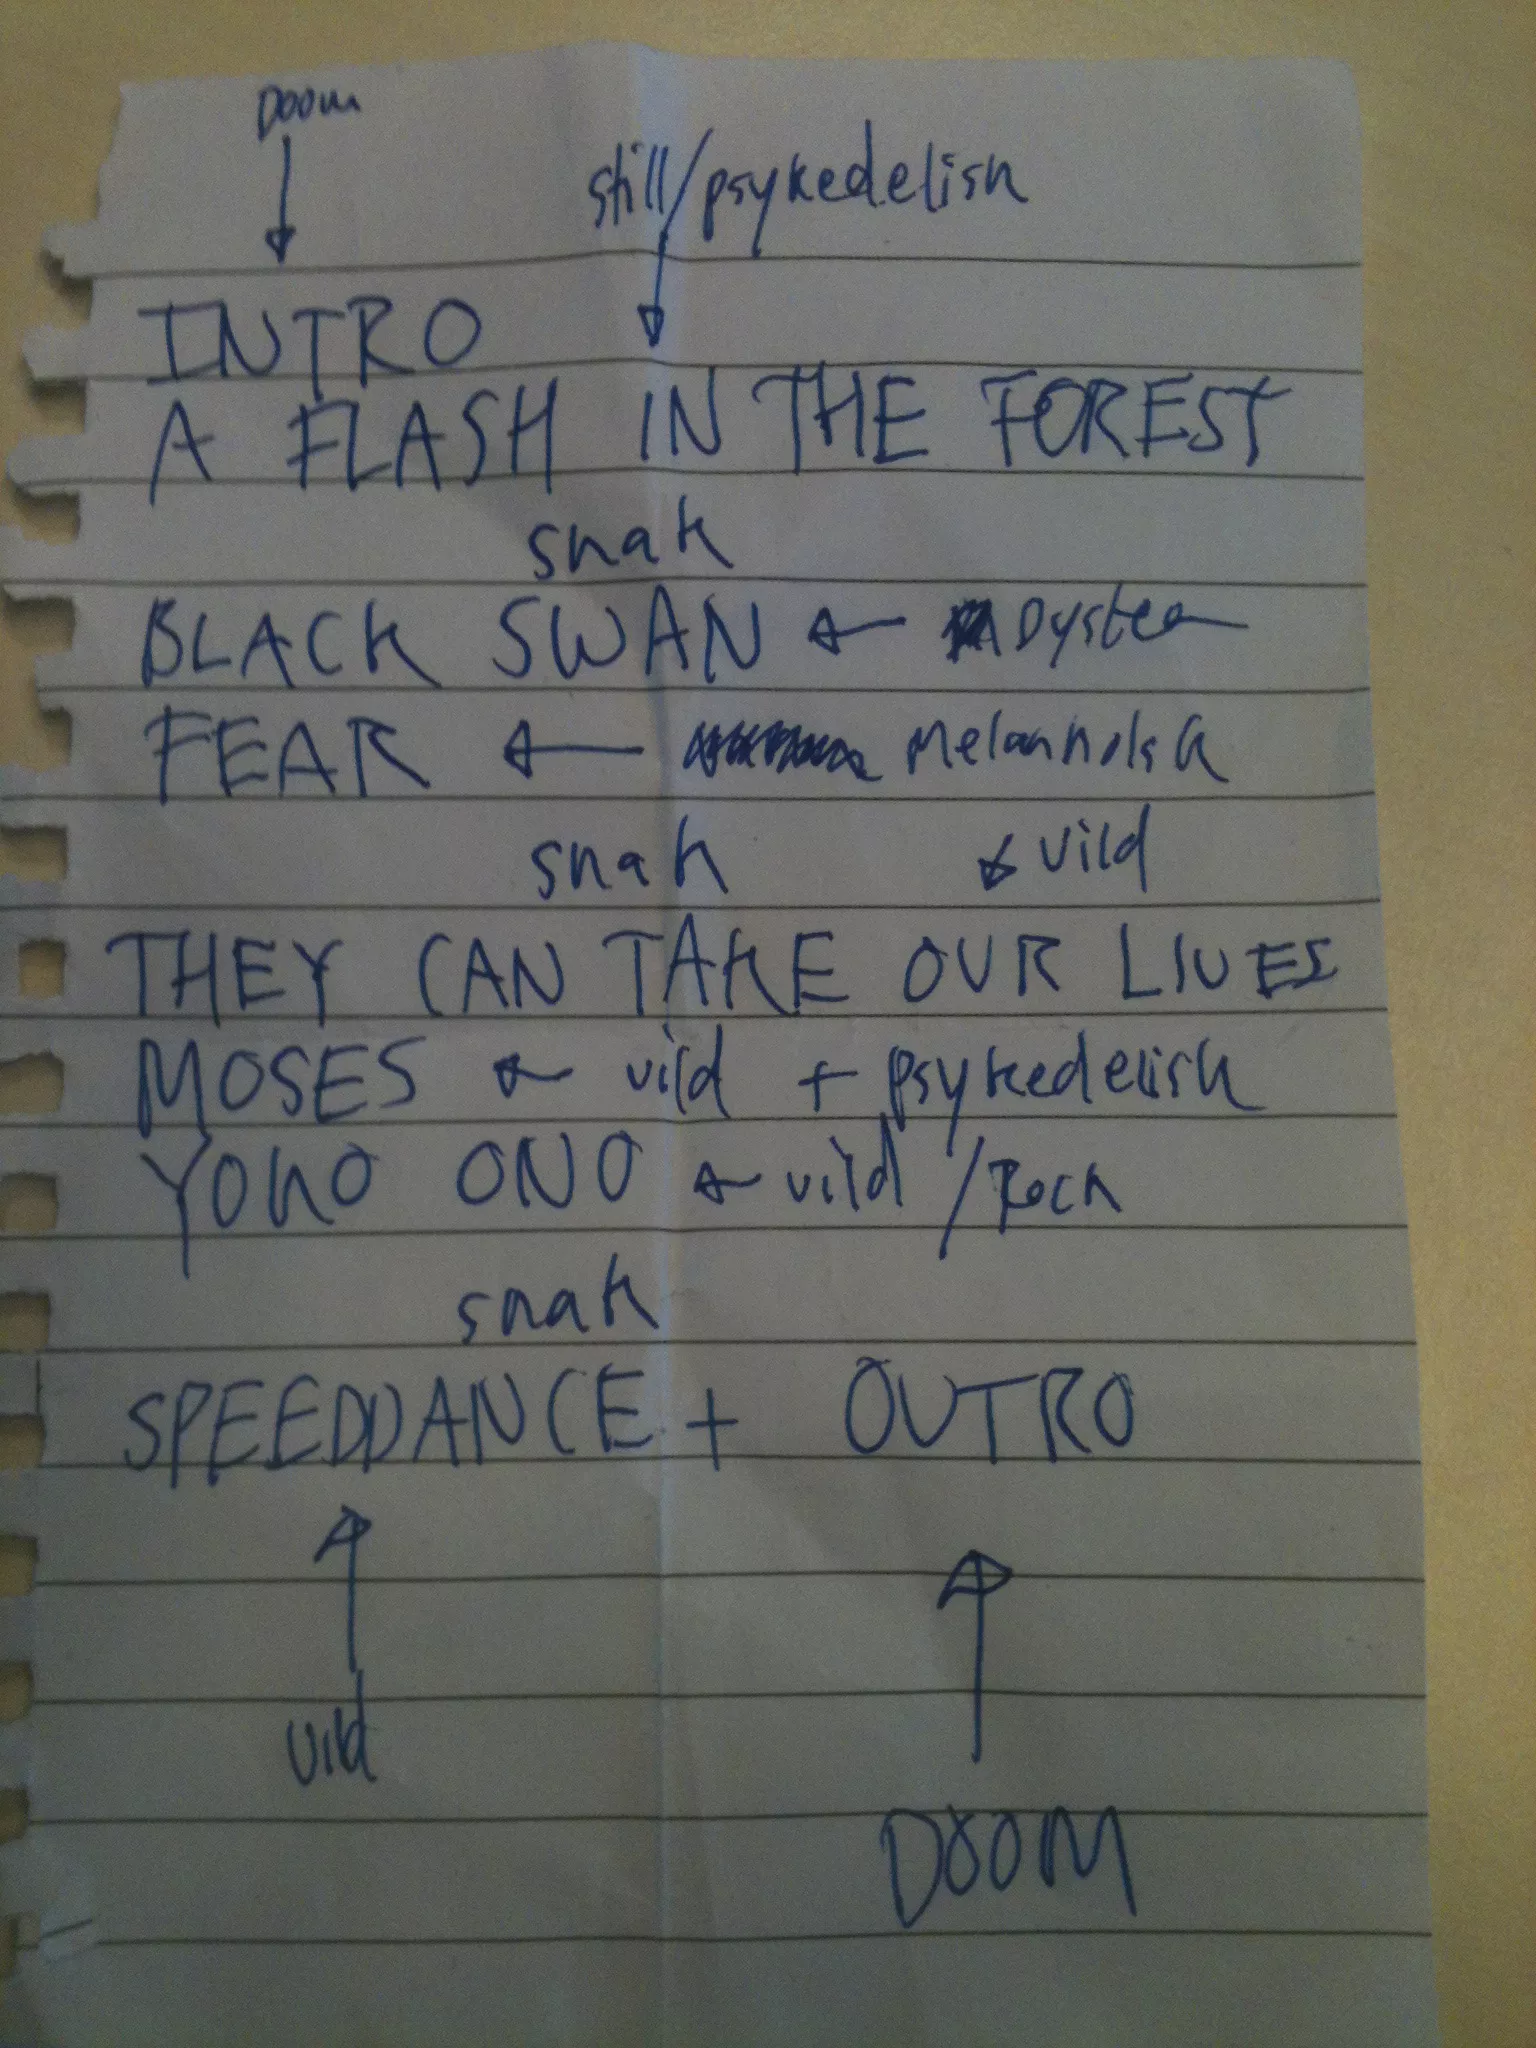 Doom
still/psykedelisk
INTRO
A FLASH IN THE FOREST
snak
BLACK SWAN
FEAR Melankolsk
snak vild
THEY CAN TAKE OUR LIVES
MOSES vild + psykedelisk
YOKO ONO vild / Rock
snak
SPEEDDANCE + OUTRO
vild
DOOM